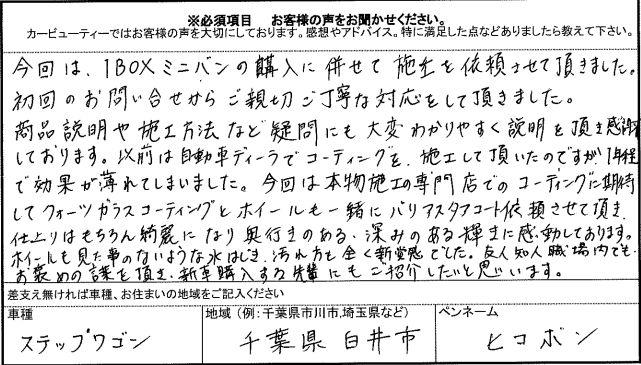 ※必須項目　お客様の声をお聞かせください。
カービューティーではお客様の声を大切にしております。感想やアドバイス。特に満足した点などありましたら教えて下さい。
今回は、1BOXミニバンの購入に併せて施工を依頼させて頂きました。
初回のお問い合せからご親切ご丁寧な対応をして頂きました。
商品説明や施工方法など疑問にも大変わかりやすく説明を頂き感謝
しております。以前は自動車ディーラでコーティングを、施工して頂いたのですが1年程
で効果が薄れてしまいました。今回は本物施工の専門店でのコーティングに期待
してクォーツガラスコーティングとホイールも一緒にバリアスタコート依頼させて頂き、
仕上りはもちろん綺麗になり奥行きのある、深みのある輝きに感動しております。
ホイールも見た事のないような水はじき、汚れ方と全く新
でした。友人知人職場内でも
お褒めの
を頂き、新車購入する
にもご紹介したいと思います。
差支え無ければ車種、お住まいの地域をご記入ください
車種
地域（例：千葉県市川市,埼玉県など）
ペンネーム
ステップワゴン
千葉県白井市
ヒコボン